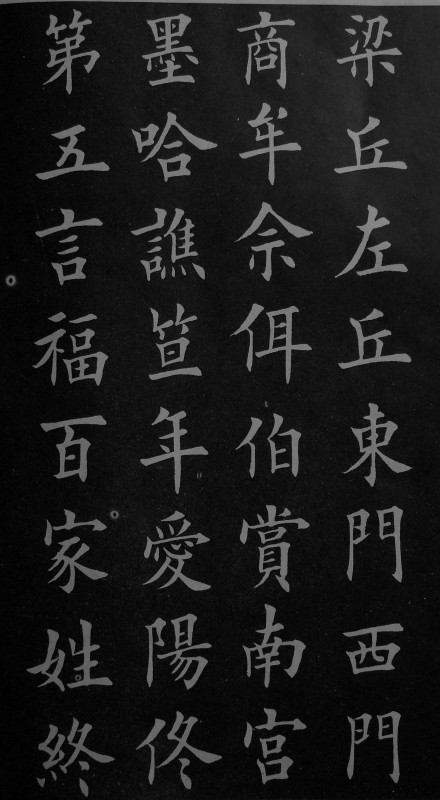 梁丘左丘東門西門
商牟佘佴伯賞南宮
墨哈譙笪年愛陽佟
第五言福百家姓終